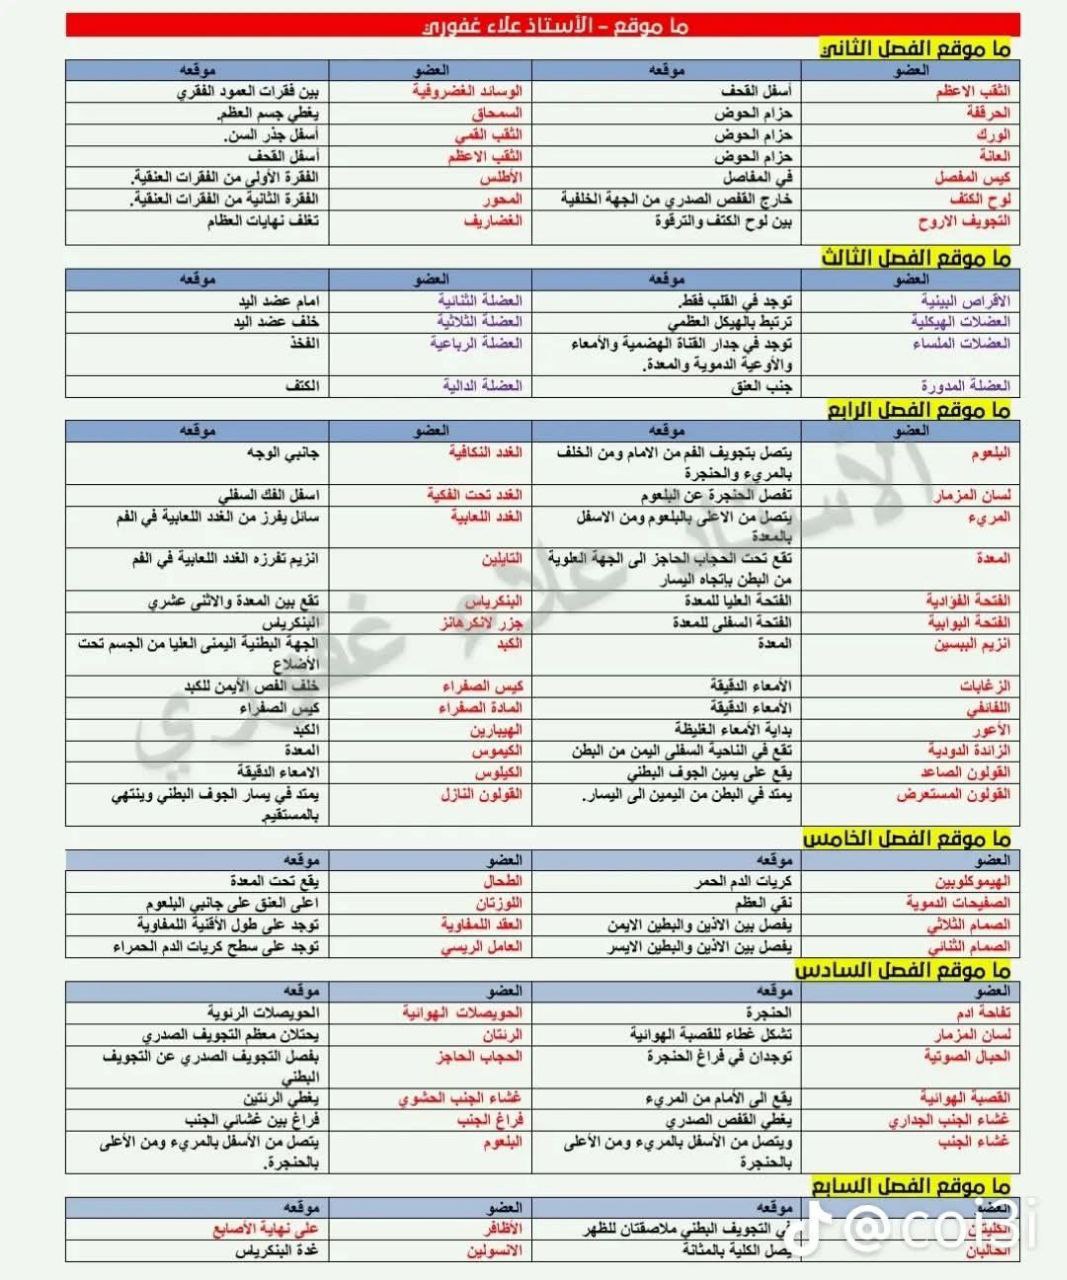 ما موقع – الأستاذ علاء غفوري
ما موقع الفصل الثاني
العضو موقعه العضو موقعه
الثقب الاعظم أسفل القحف الوسائد الغضروفية بين فقرات العمود الفقري
الحرقفة حزام الحوض السمحاق يغطي جسم العظم.
الورك حزام الحوض الثقب القمي أسفل جذر السن.
العانة حزام الحوض الثقب الاعظم أسفل القحف
كيس المفصل في المفاصل الأطلس الفقرة الأولى من الفقرات العنقية.
لوح الكتف خارج القفص الصدري من الجهة الخلفية المحور الفقرة الثانية من الفقرات العنقية.
التجويف الاروح بين لوح الكتف والترقوة الغضاريف تغلف نهايات العظام
ما موقع الفصل الثالث
العضو موقعه العضو موقعه
الاقراص البينية توجد في القلب فقط. العضلة الثنائية امام عضد اليد
العضلات الهيكلية ترتبط بالهيكل العظمي العضلة الثلاثية خلف عضد اليد
العضلات الملساء توجد في جدار القناة الهضمية والأمعاء العضلة الرباعية الفخذ
والأوعية الدموية والمعدة.
العضلة المدورة جنب العنق العضلة الدالية الكتف
ما موقع الفصل الرابع
العضو موقعه العضو موقعه
البلعوم يتصل بتجويف الفم من الامام ومن الخلف الغدد النكافية جانبي الوجه
بالمريء والحنجرة
لسان المزمار تفصل الحنجرة عن البلعوم الغدد تحت الفكية اسفل الفك السفلي
المريء يتصل من الاعلى بالبلعوم ومن الاسفل الغدد اللعابية سائل يفرز من الغدد اللعابية في الفم
بالمعدة
المعدة تقع تحت الحجاب الحاجز الى الجهة العلوية التايلين انزيم تفرزه الغدد اللعابية في الفم
من البطن بإتجاه اليسار
الفتحة الفؤادية الفتحة العليا للمعدة البنكرياس تقع بين المعدة والاثنى عشري
الفتحة البوابية الفتحة السفلى للمعدة جزر لانكرهانز البنكرياس
انزيم الببسين المعدة الكبد الجهة البطنية اليمنى العليا من الجسم تحت
الأضلاع
الزغابات الأمعاء الدقيقة كيس الصفراء خلف الفص الأيمن للكبد
اللفائفي الأمعاء الدقيقة المادة الصفراء كيس الصفراء
الأعور بداية الأمعاء الغليظة الهيبارين الكبد
الزائدة الدودية تقع في الناحية السفلى اليمن من البطن الكيموس المعدة
القولون الصاعد يقع على يمين الجوف البطني الكيلوس الامعاء الدقيقة
القولون المستعرض يمتد في البطن من اليمين الى اليسار. القولون النازل يمتد في يسار الجوف البطني وينتهي
بالمستقيم.
ما موقع الفصل الخامس
العضو موقعه العضو موقعه
الهيموكلوبين كريات الدم الحمر الطحال يقع تحت المعدة
الصفيحات الدموية نقي العظم اللوزتان اعلى العنق على جانبي البلعوم
الصمام الثلاثي يفصل بين الاذين والبطين الايمن العقد اللمفاوية توجد على طول الأقنية اللمفاوية
الصمام الثنائي يفصل بين الاذين والبطين الايسر العامل الريسي توجد على سطح كريات الدم الحمراء
ما موقع الفصل السادس
العضو موقعه العضو موقعه
تفاحة ادم الحنجرة الحويصلات الهوائية الحويصلات الرئوية
لسان المزمار تشكل غطاء للقصبة الهوائية الرئتان يحتلان معظم التجويف الصدري
الحبال الصوتية توجدان في فراغ الحنجرة الحجاب الحاجز بفصل التجويف الصدري عن التجويف
البطني
القصبة الهوائية يقع الى الأمام من المريء غشاء الجنب الحشوي يغطي الرئتين
غشاء الجنب الجداري يغطي القفص الصدري فراغ الجنب فراغ بين غشائي الجنب
غشاء الجنب ويتصل من الأسفل بالمريء ومن الأعلى البلعوم يتصل من الأسفل بالمريء ومن الأعلى
بالحنجرة بالحنجرة.
ما موقع الفصل السابع
العضو موقعه العضو موقعه
الكليتان في التجويف البطني ملاصقتان للظهر الأظافر على نهاية الأصابع
الحالبان يصل الكلية بالمثانة الانسولين غدة البنكرياس
الأستاذ علاء غفوري
@coi3i